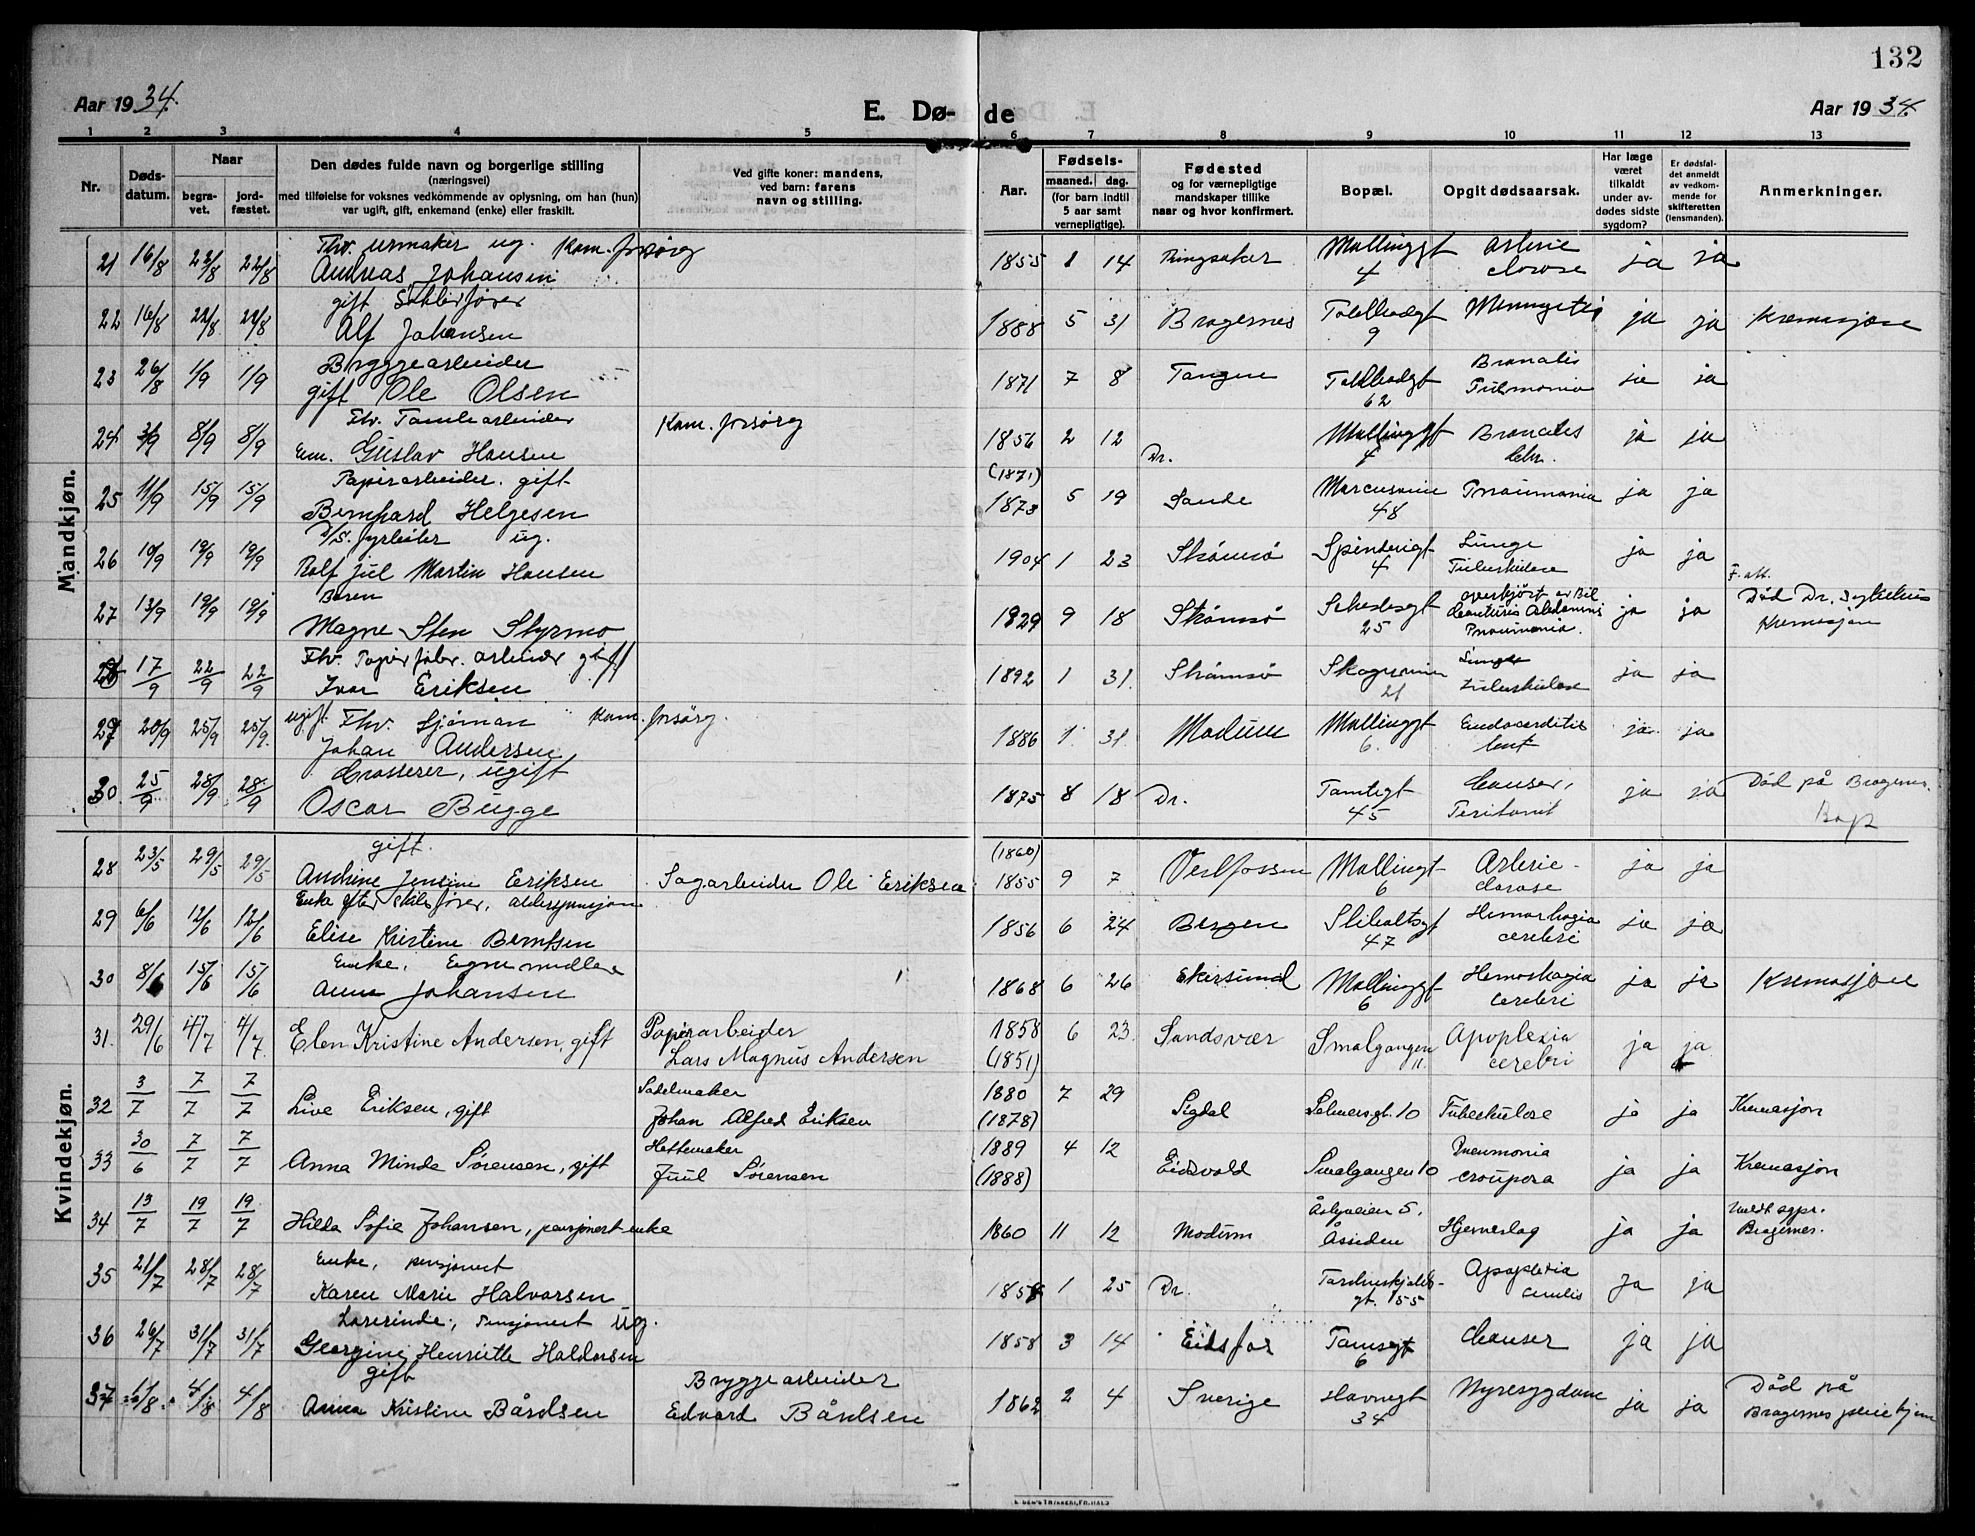 132
Aar 1934.
E. Dø-de
Aar 1934.
1 2 3 4 5 6 7 8 9 10 11 12 13
Nr.
Døds-datum.
Naar
begra-vet.
jord-fæstet.
Den dødes fulde navn og borgerlige stilling
(næringsvei)
med tilføielse for voksnes vedkommende av oplysning, om han (hun)
var ugift, gift, enkemand (enke) eller fraskilt.
Ved gifte koner: mandens,
ved barn: farens
navn og stilling.
Aar.
Fødsels-
maaned. dag.
(for barn indtil
5 aar samt
vernepligtige).
Fødested
og for værnepligtige
mandskaper tillike
naar og hvor konfirmert.
Bopæl.
Opgit dødsaarsak.
Har læge
været
tilkaldt
under av-
dødes sidste
sygdom?
Er dødsfal-
det anmeldt
av vedkom-
mende for
skifteretten
(lensmanden).
Anmerkninger.
Mandkjøn.
Fhv. urmaker ug. Kom. forsørg
21 16/8 23/8 22/8 Andreas Johansen 1855 1 14 Ringsaker Mallinggt 4 Arterie clorose ja ja
gift Sjåførfører
22 16/8 22/8 22/8 Alf Johansen 1888 5 31 Bragernes Tollbodgt 9 Meningetis ja ja Kremasjon
Bryggearbeider
23 26/8 1/9 1/9 gift Ole Olsen 1871 7 8 Tangen Tollbodgt 62 Broncitis Pulmonia ja ja
Fhv. Tomtearbeider Kom. forsørg
24 3/9 8/9 8/9 Em. Gustav Hansen 1856 2 12 Dr. Mallinggt 4 Broncites chr. ja ja
Papirarbeider. gift
25 11/9 15/9 15/9 Bernhard Helgesen (1871) 1873 5 19 Sande Marcusveien 48 Pnaumonia ja ja
D/S. fyrbøter ug.
26 10/9 19/9 19/9 Rolf Jul Martin Hansen 1904 1 23 Strømsø Spinderigt 4 Lunge Tuberkulose ja ja
Barn
27 13/9 19/9 19/9 Magne Sten Styrmo 1929 9 18 Strømsø Schesesgt 25 overkjørt av Bil Contusis Abdomnis Pnaumonia. ja ja F. att. Død Dr. Sykehus Kremasjon
Fhv. Papir fabr. arbeider gift
28 17/9 22/9 22/9 Ivar Eriksen 1892 1 31. Strømsø Skogveien 21 Lunge tuberkulose ja ja
ugift Fhv. Sjøman Kom. forsørg.
29 20/9 25/9 25/9. Johan Andersen 1886 1 31. Modum Mallinggt 6. Endocarditis lent ja ja
Grosserer, ugift
30 25/9 28/9 28/9 Oscar Bugge 1875 8 18 Dr. Tomtegt 45 Cancer, Peritonit ja ja Død på Bragernes. Bopz
Kvindekjøn.
gift.
28 23/5 29/5 29/5 Andrine Jensine Eriksen Sagarbeider Ole Eriksen (1860) 1855 9 7 Vestfossen Mallingt 6 Arterie-clorose ja ja
Enke efter skibsfører, alderspensjon
29 6/6 12/6 12/6 Elise Kristine Berntsen 1856 6 24 Bergen Stiboltsgt 47 Hemorhagia cerebri ja ja
Enke. Egne midler
30 8/6 15/6 15/6 Anne Johansen 1868 6 26 Ekersund Mallinggt 6 Hemorhagia cerebri ja ja Kremasjon
31. 29/6 4/7 4/7. Elen Kristine Andersen, gift Papirarbeider Lars Magnus Andersen 1858 (1851) 6 23. Sandsvær Smalgangen 11. Apoplexia cerebri ja ja
32 3/7 7/7 7/7 Live Eriksen, gift Sadelmaker Johan Alfred Eriksen 1880 (1878) 7 29 Sigdal Selmersgt. 10 Tuberkulose ja ja Kremasjon
33 30/6 7/7 7/7 Anna Minda Sørensen, gift Hettemaker Juul Sørensen 1889 (1888) 4 12 Eidsvold Smalgangen 10 Pneumonia crouposa ja ja Kremasjon
34 13/7 19/7 19/7 Hilda Sofie Johansen, pensjonert enke 1860 11 12 Modum Åslyveien 5, Åssiden Hjerneslag ja ja Meldt sgpr. Bragernes.
Enke, pensjonert
35 21/7 28/7 28/7 Karen Marie Halvorsen 1858 1 25 Dr. Tordenskjolds-gt. 155 Apoplexia cerebris ja ja
Lærerinde, Pensjonert Ug.
36 26/7 31/7 31/7 Georgine Henriette Haldorsen 1858 3 14 Eidsfos Tomtegt 6 Cancer ja ja
gift Bryggearbeider
37 1/8 4/8 4/8 Anna Kristine Bårdsen Edvard Bårdsen 1862 2 4 Sverige Havnegt 34 Nyresygdom ja ja Død på Bragernes pleiehjem